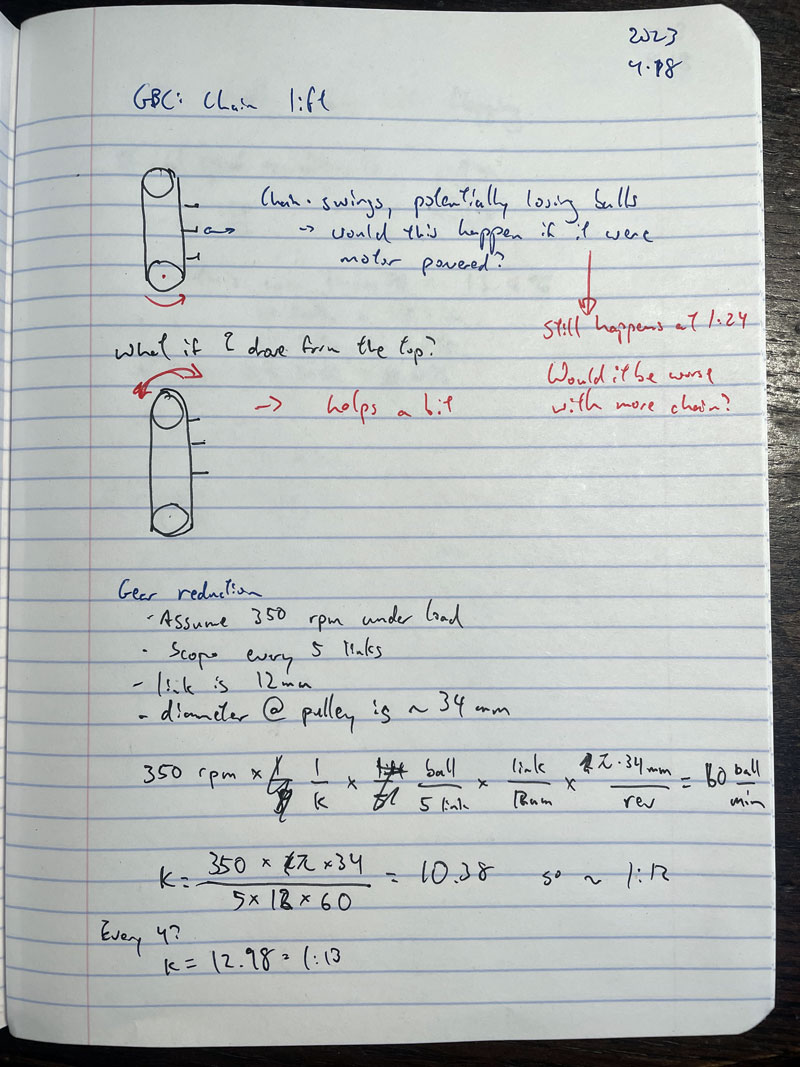 2023
4.18
GBC: Chain lift
Chain swings, potentially losing balls
→ would this happen if it were
motor powered?
Still happens at 1:24
What if I drove from the top?
Would it be worse
with more chain?
→ helps a bit
Gear reduction
- Assume 350 rpm under load
- Scoop every 5 links
- link is 12mm
- diameter @ pulley is ~ 34 mm
350 rpm × 1/k × ball/5 link × link/12mm × π·34mm/rev = 60 ball/min
k = 350 × π × 34 / 5 × 12 × 60 = 10.38 so ~ 1:12
Every 4?
k = 12.98 = 1:13